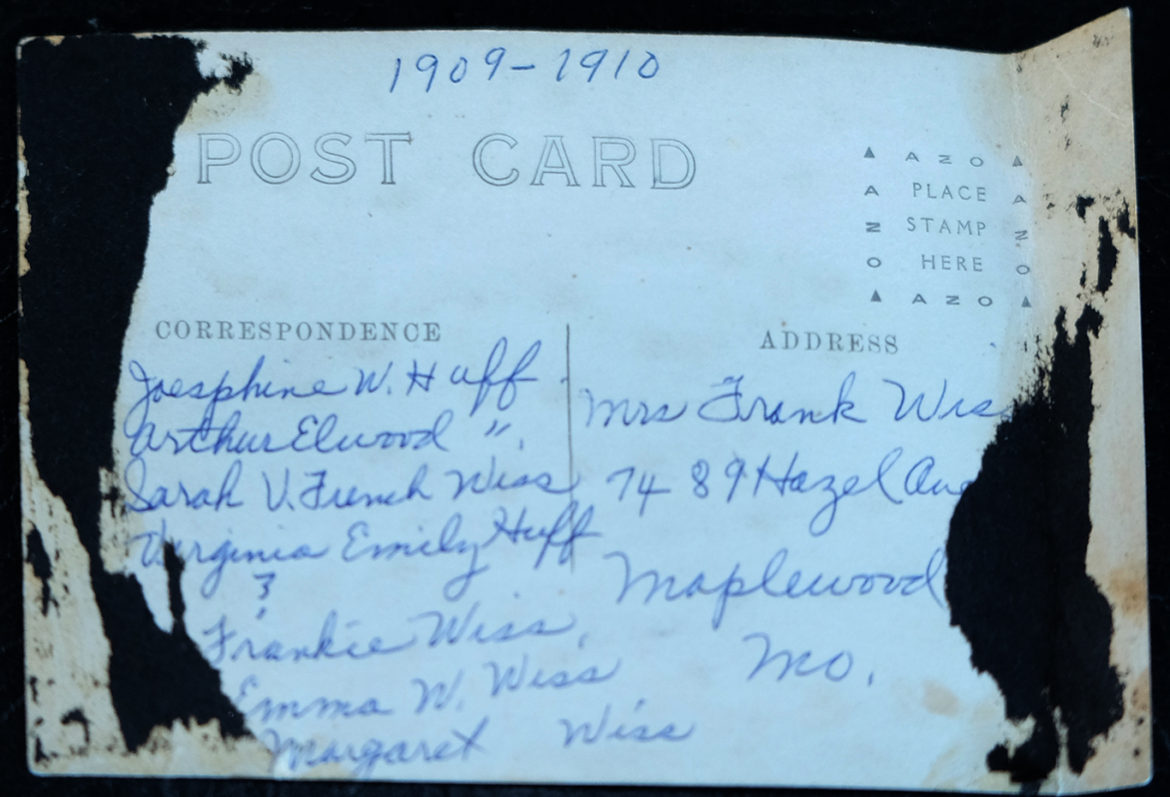 1909-1910
POST CARD
▲ AZO ▲
A PLACE A
Z STAMP Z
O HERE O
▲ AZO ▲
CORRESPONDENCE
ADDRESS
Joesphine W. Huff
Arthur Elwood ".
Sarah V. French Wiss
Virginia Emily Huff
?
Frankie Wiss,
Emma W. Wiss
Margaret Wiss
Mrs Frank Wiss
7489 Hazel Ave
Maplewood
Mo.